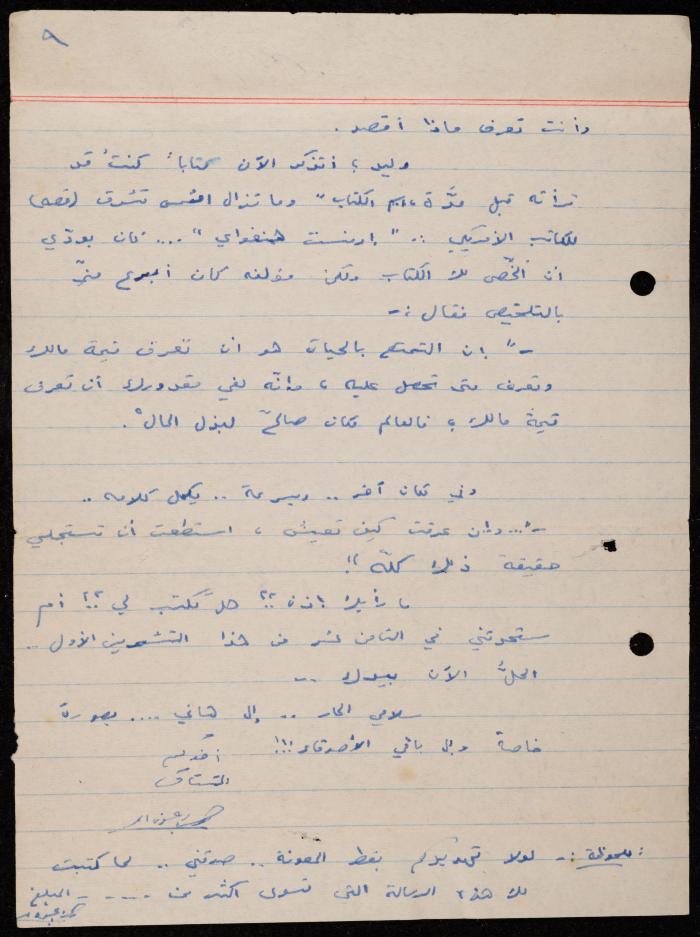 ٩
وأنت تعرف ماذا أقصد .
وليد ؛ أتذكر الآن كتاباً كنتُ قد
قرأته قبل مدَّة ، اسم الكتاب " وما تزال الشمس تشرق ( قصة )
للكاتب الأمريكي :. " إرنست همنغواي " .... كان بودّي
أن ألخّص لك الكتاب ولكن مؤلفه كان أبرع منّي
بالتلخيص فقال :-
- " إن التمتع بالحياة هو أن تعرف قيمة مالك
وتعرف متى تحصل عليه ، وإنّه لفي مقدورك أن تعرف
قيمة مالك ؛ فالعالم مكان صالحٌ لبذل المال " .
وفي مكان آخر .. وبسرعة .. يكمل كلامه ..
- " ... وإن عرفت كيف تعيش ، استطعت أن تستجلي
حقيقة ذلك كلّه " !
ما رأيك إذن ؟! هل تكتب لي ؟! أم
ستحدثني في الثامن عشر من هذا التشرين الأول ..
الحلُّ الآن بيدك ..
سلامي الحار .. إلى هاني .... بصورة
خاصة وإلى باقي الأصدقاء !!!
أخوكم
المشتاق
ملحوظة :- لولا تهديدكم بقطع المعونة .. صدقني .. لما كتبت
لك هذه الرسالة التي تسوى أكثر من .... - المبلغ